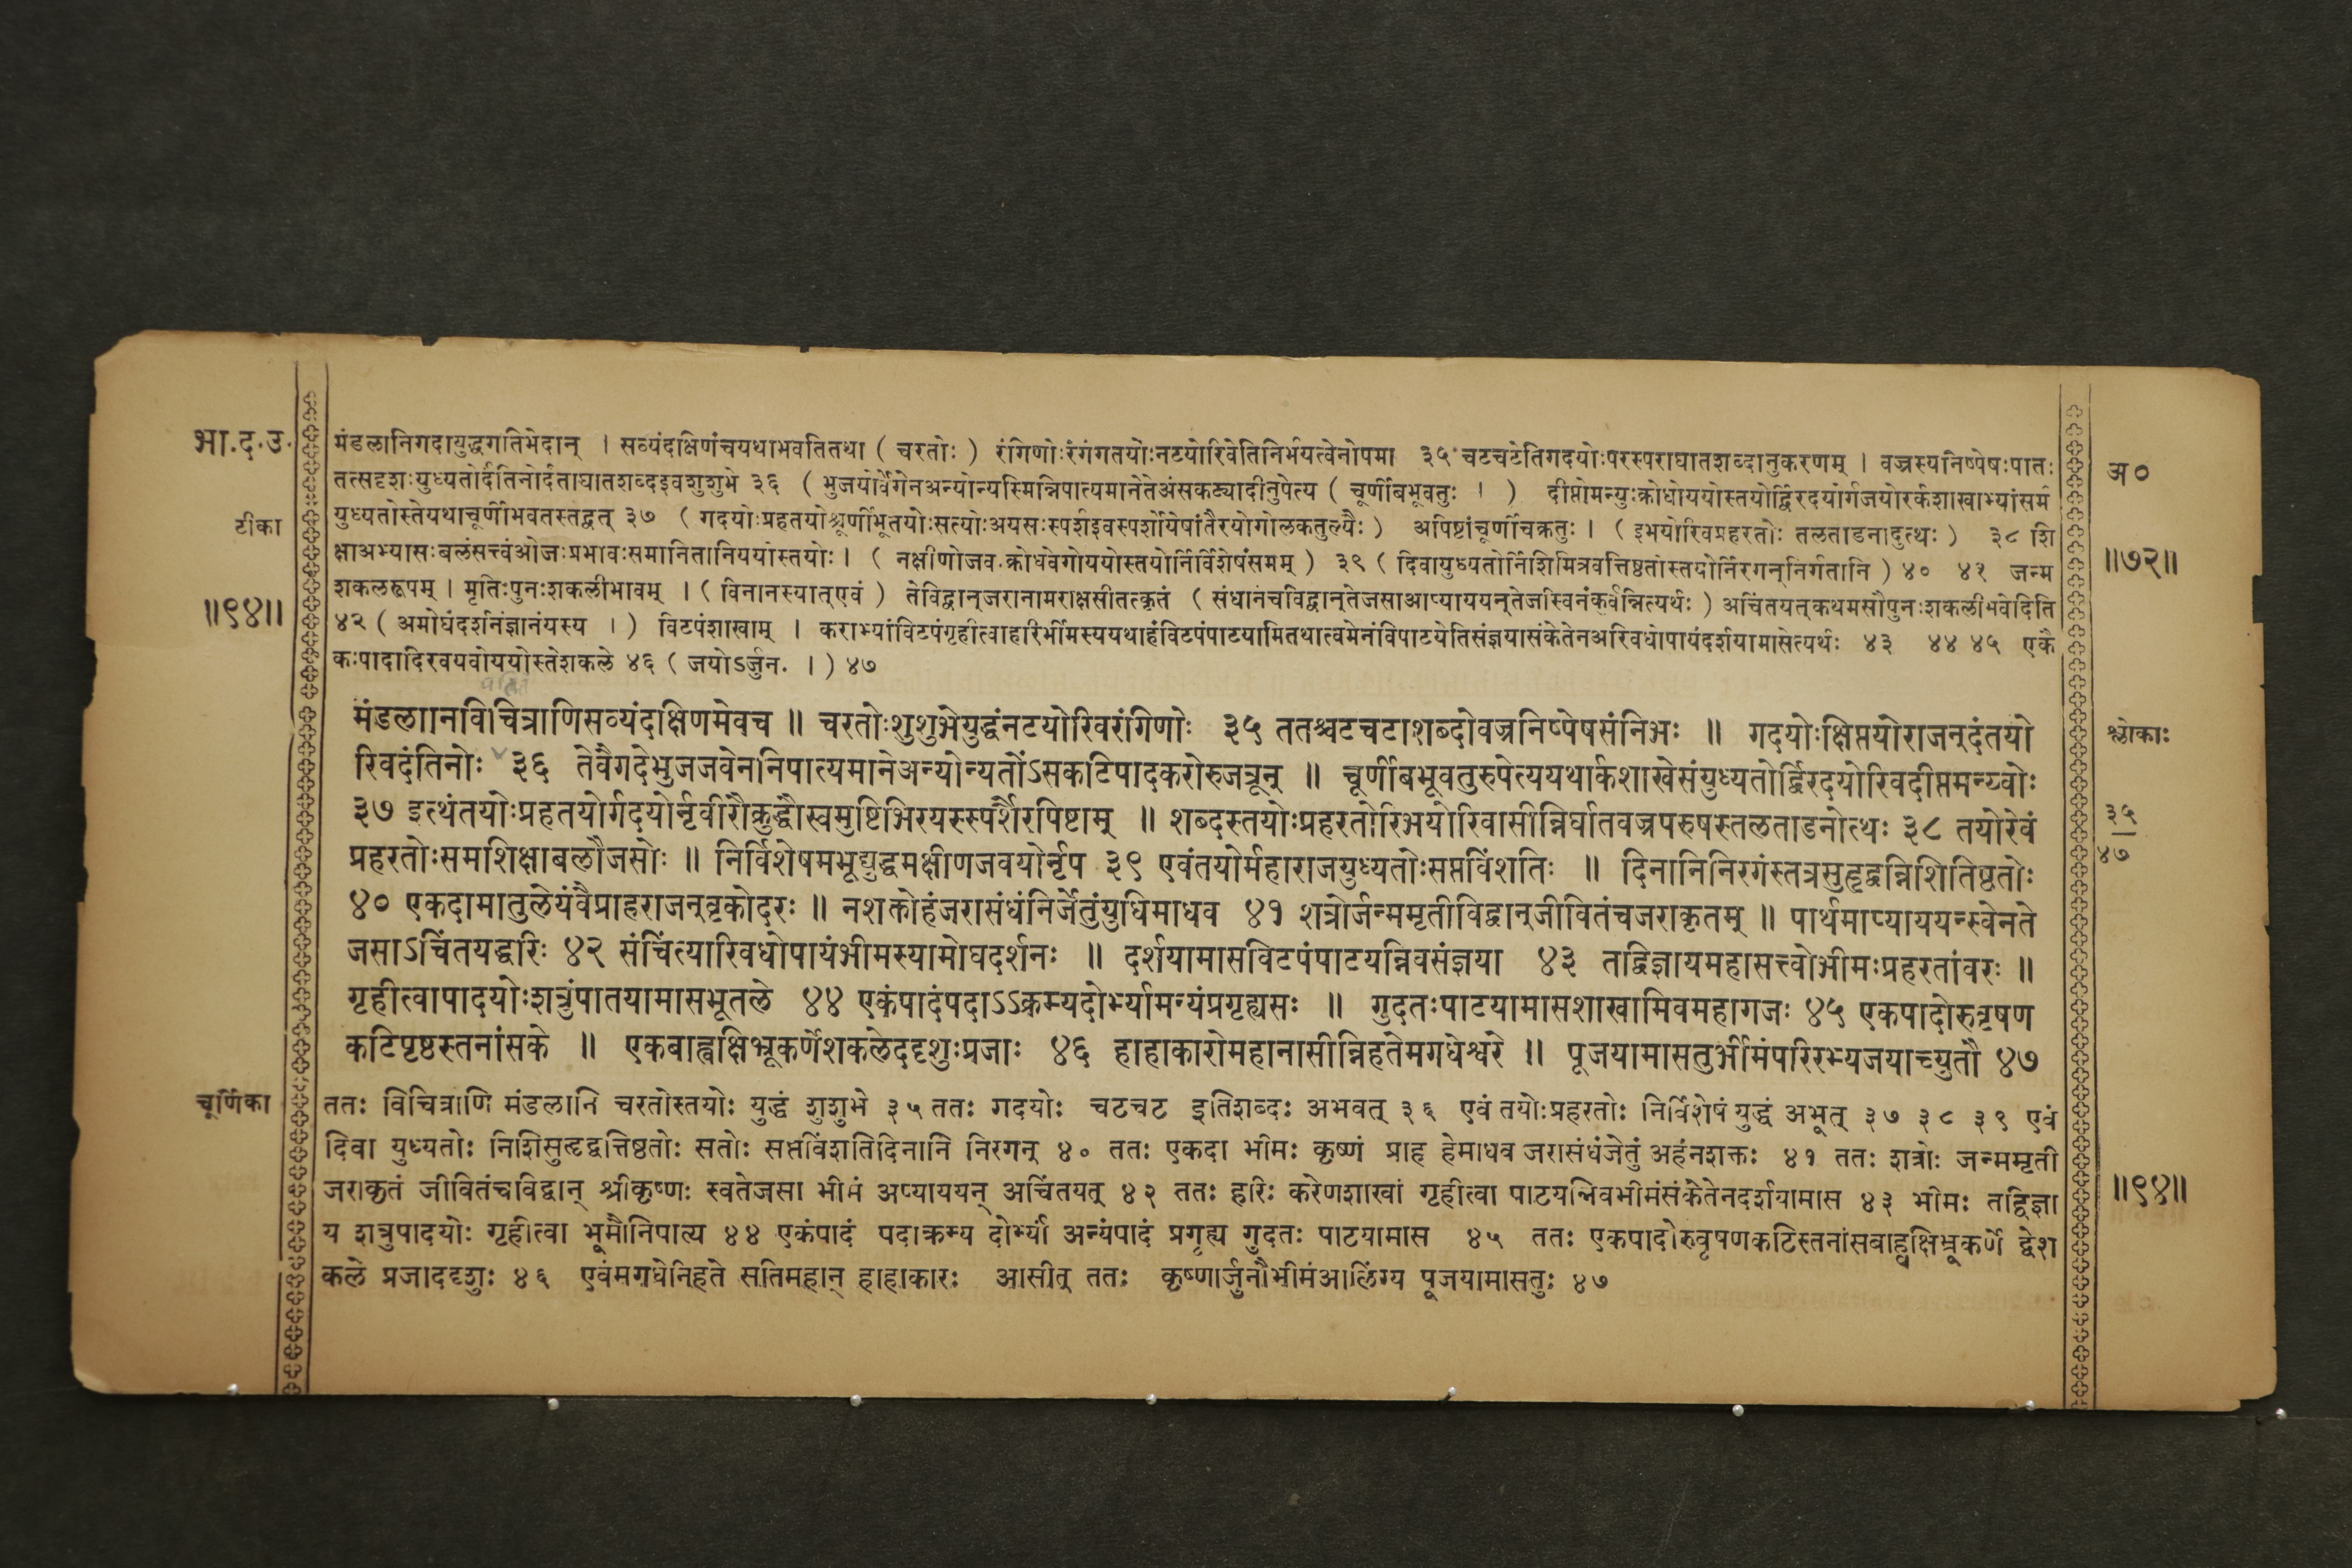 भा.द.उ.
टीका
॥९४॥
मंडलानिगदायुद्धगतिभेदान् । सव्यंदक्षिणंचयथाभवतितथा ( चरतोः ) रंगिणोःरंगंगतयोःनटयोरिवेतिनिर्भयत्वेनोपमा ३५ चटचटेतिगदयोःपरस्पराघातशब्दानुकरणम् । वज्रस्यनिष्पेषःपातः
तत्सदृशःयुध्यतोर्दंतिनोर्दंताघातशब्दइवशुशुभे ३६ ( भुजयोर्वेगेनअन्योन्यस्मिन्निपात्यमानेतेअंसकट्यादीनुपेत्य ( चूर्णीबभूवतुः । ) दीप्तोमन्युःक्रोधोययोस्तयोर्द्विरदयोर्गजयोरर्कशाखाभ्यांसमं
युध्यतोस्तेयथाचूर्णीभवतस्तद्वत् ३७ ( गदयोःप्रहतयोश्चूर्णीभूतयोःसत्योःअयसःस्पर्शइवस्पर्शोयेषांतैरयोगोलकतुल्यैः ) अपिष्टांचूर्णीचक्रतुः । ( इभयोरिवप्रहरतोः तलताडनादुत्थः ) ३८ शि
क्षाअभ्यासःबलंसत्त्वंओजःप्रभावःसमानितानिययोस्तयोः । ( नक्षीणोजवःक्रोधवेगोययोस्तयोर्निर्विशेषंसमम् ) ३९ ( दिवायुध्यतोर्निशिमित्रवत्तिष्ठतोस्तयोर्निरगन्निर्गतानि ) ४० ४१ जन्म
शकलरूपम् । मृतिःपुनःशकलीभावम् । ( विनानस्यात्एवं ) तेविद्वान्जरानामराक्षसीतत्कृतं ( संधानंचविद्वान्तेजसाआप्याययन्तेजस्विनंकुर्वन्नित्यर्थः ) अचिंतयत्कथमसौपुनःशकलीभवेदिति
४२ ( अमोघंदर्शनंज्ञानंयस्य । ) विटपंशाखाम् । कराभ्यांविटपंगृहीत्वाहारिर्भीमस्ययथाहंविटपंपाटयामितथात्वमेनंविपाटयेतिसंज्ञयासंकेतेनअरिवधोपायंदर्शयामासेत्यर्थः ४३ ४४ ४५ एकै
कःपादादिरवयवोययोस्तेशकले ४६ ( जयोऽर्जुनः । ) ४७
मंडलाानविचित्राणिसव्यंदक्षिणमेवच ॥ चरतोःशुशुभेयुद्धंनटयोरिवरंगिणोः ३५ ततश्चटचटाशब्दोवज्रनिष्पेषसंनिभः ॥ गदयोःक्षिप्तयोराजन्दंतयो
रिवदंतिनोः ३६ तेवैगदेभुजजवेननिपात्यमानेअन्योन्यतोंऽसकटिपादकरोरुजत्रून् ॥ चूर्णीबभूवतुरुपेत्ययथार्कशाखेसंयुध्यतोर्द्विरदयोरिवदीप्तमन्य्वोः
३७ इत्थंतयोःप्रहतयोर्गदयोर्नृवीरौक्रुद्धौस्वमुष्टिभिरयस्स्पर्शैरपिष्टाम् ॥ शब्दस्तयोःप्रहरतोरिभयोरिवासीन्निर्घातवज्रपरुषस्तलताडनोत्थः ३८ तयोरेवं
प्रहरतोःसमशिक्षाबलौजसोः ॥ निर्विशेषमभूद्युद्धमक्षीणजवयोर्नृप ३९ एवंतयोर्महाराजयुध्यतोःसप्तविंशतिः ॥ दिनानिनिरगंस्तत्रसुहृद्वन्निशितिष्ठतोः
४० एकदामातुलेयंवैप्राहराजन्वृकोदरः ॥ नशक्तोहंजरासंधंनिर्जेतुंयुधिमाधव ४१ शत्रोर्जन्ममृतीविद्वान्जीवितंचजराकृतम् ॥ पार्थमाप्याययन्स्वेनते
जसाऽचिंतयद्धरिः ४२ संचिंत्यारिवधोपायंभीमस्यामोघदर्शनः ॥ दर्शयामासविटपंपाटयन्निवसंज्ञया ४३ तद्विज्ञायमहासत्त्वोभीमःप्रहरतांवरः ॥
गृहीत्वापादयोःशत्रुंपातयामासभूतले ४४ एकंपादंपदाऽऽक्रम्यदोर्भ्यामन्यंप्रगृह्यसः ॥ गुदतःपाटयामासशाखामिवमहागजः ४५ एकपादोरुवृषण
कटिपृष्ठस्तनांसके ॥ एकबाह्वक्षिभ्रूकर्णेशकलेददृशुःप्रजाः ४६ हाहाकारोमहानासीन्निहतेमगधेश्वरे ॥ पूजयामासतुर्भीमंपरिरभ्यजयाच्युतौ ४७
चूर्णिका
ततः विचित्राणि मंडलानि चरतोस्तयोः युद्धं शुशुभे ३५ ततः गदयोः चटचट इतिशब्दः अभवत् ३६ एवं तयोःप्रहरतोः निर्विशेषं युद्धं अभूत् ३७ ३८ ३९ एवं
दिवा युध्यतोः निशिसुहृद्वत्तिष्ठतोः सतोः सप्तविंशतिदिनानि निरगन् ४० ततः एकदा भीमः कृष्णं प्राह हेमाधव जरासंधंजेतुं अहंनशक्तः ४१ ततः शत्रोः जन्ममृती
जराकृतं जीवितंचविद्वान् श्रीकृष्णः स्वतेजसा भीमं अप्याययन् अचिंतयत् ४२ ततः हरिः करेणशाखां गृहीत्वा पाटयन्निवभीमंसंकेतेनदर्शयामास ४३ भीमः तद्विज्ञा
य शत्रुपादयोः गृहीत्वा भूमौनिपात्य ४४ एकंपादं पदाक्रम्य दोर्भ्यां अन्यंपादं प्रगृह्य गुदतः पाटयामास ४५ ततः एकपादोरुवृषणकटिस्तनांसबाह्वक्षिभ्रूकर्णे द्वेश
कले प्रजाददृशुः ४६ एवंमगधेनिहते सतिमहान् हाहाकारः आसीत् ततः कृष्णार्जुनौभीमंआलिंग्य पूजयामासतुः ४७
अ०
॥७२॥
श्लोकाः
३५
४७
॥९४॥